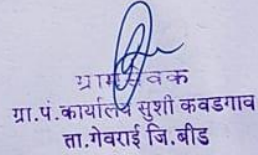 ग्रामसेवक
ग्रा.पं.कार्यालय सुशी कवडगाव
ता.गेवराई जि.बीड